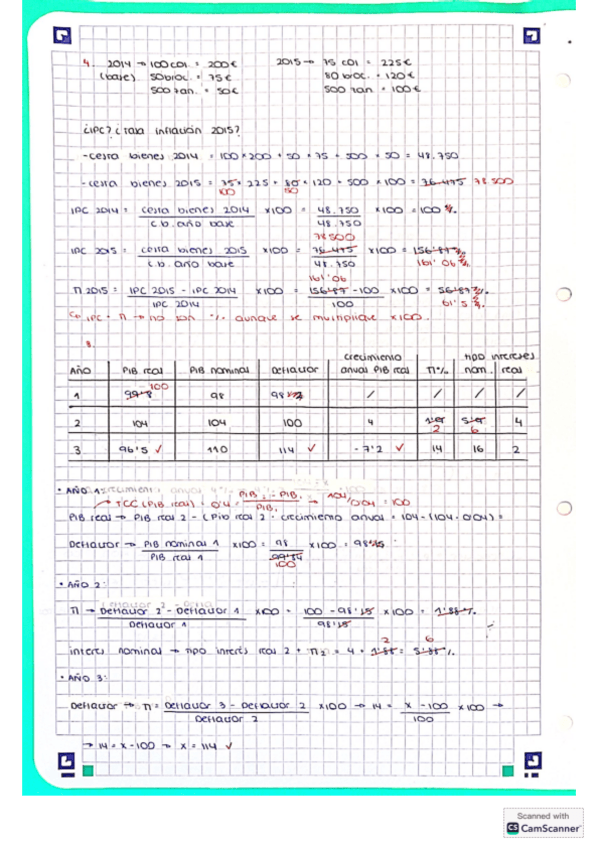 4. 2014 → 100 CD1 = 200€ 2015 → 75 CD1 = 225€
(base) 50 broc. = 75€ 80 broc. = 120€
500 ran = 50€ 500 ran = 100€
¿IPC? ¿Tasa inflación 2015?
- cesta bienes 2014 = 100 · 200 + 50 · 75 + 500 · 50 = 48.750
- cesta bienes 2015 = 75 · 225 + 80 · 120 + 500 · 100 = 76.475 78 500
100 50
IPC 2014 = cesta bienes 2014 / c.b. año base x100 = 48.750 / 48.750 x100 = 100%.
78500
IPC 2015 = cesta bienes 2015 / c.b. año base x100 = 76.475 / 48.750 x100 = 156'87%
161'06 161'06%
π 2015 = IPC 2015 - IPC 2014 / IPC 2014 x100 = 156'87 - 100 / 100 x100 = 56'87%
61'5%.
IPC · π → no son % aunque se multiplique x100.
8.
Año PIB real PIB nominal Deflactor crecimiento anual PIB real π%. tipo intereses nom. real
1 99'8 100 98 98 / / / /
2 104 104 100 4 2 6 4
3 96'5 ✓ 110 114 ✓ -7'2 ✓ 14 16 2
• AÑO 1:
→ TCC (PIB real) = 0'4 = PIB₂ - PIB₁ / PIB₁ → 104/0'04 = 100
PIB real → PIB real 2 - (PIB real 2 · crecimiento anual = 104 - (104 · 0'04) =
Deflactor → PIB nominal 1 / PIB real 1 x100 = 98 / 99'84 x100 = 98
100
• AÑO 2:
π → Deflactor 2 - Deflactor 1 / Deflactor 1 x100 = 100 - 98'15 / 98'15 x100 = 1'88%.
2 6
interes nominal → tipo interés real 2 + π₂ = 4 + 1'88 = 5'88%.
• AÑO 3:
Deflactor → π = Deflactor 3 - Deflactor 2 / Deflactor 2 x100 → 14 = x - 100 / 100 x100 →
→ 14 = x - 100 → x = 114 ✓
Scanned with
CS CamScanner